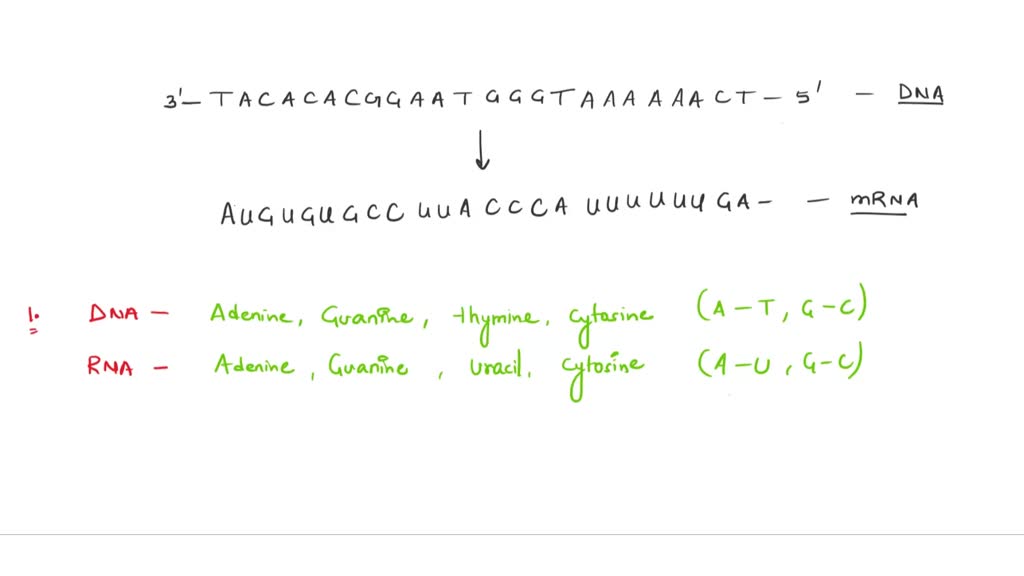 3'- T A C A C A C G G A A T G G G T A A A A A A C T - 5' - DNA
A U G U G U G C C U U A C C C A U U U U U U G A - - mRNA
1. DNA - Adenine, Guanine, thymine, cytosine (A-T, G-C)
RNA - Adenine, Guanine, Uracil, cytosine (A-U, G-C)